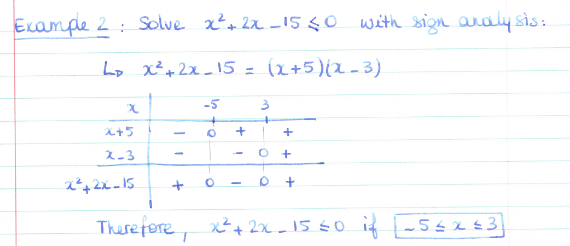 Example 2 : Solve x² + 2x - 15 ≤ 0 with sign analysis:
↳ x² + 2x - 15 = (x+5)(x-3)
x | -5 3
x+5 | - 0 + | +
x-3 | - | - 0 +
x² + 2x - 15 | + 0 - 0 +
Therefore, x² + 2x - 15 ≤ 0 if -5 ≤ x ≤ 3